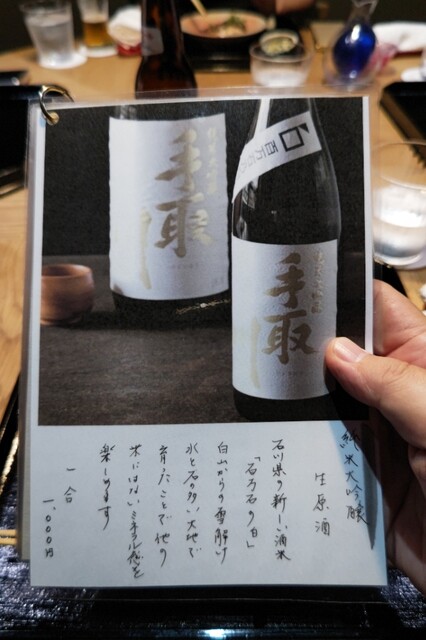 手取川
手取川
純米大吟醸
生原酒
石川県の新しい酒米
「百万石の白」
白山からの雪解け
水と石の多い大地で
育ったことで他の
米にはないミネラル感を
楽しめます
一合
一,000円